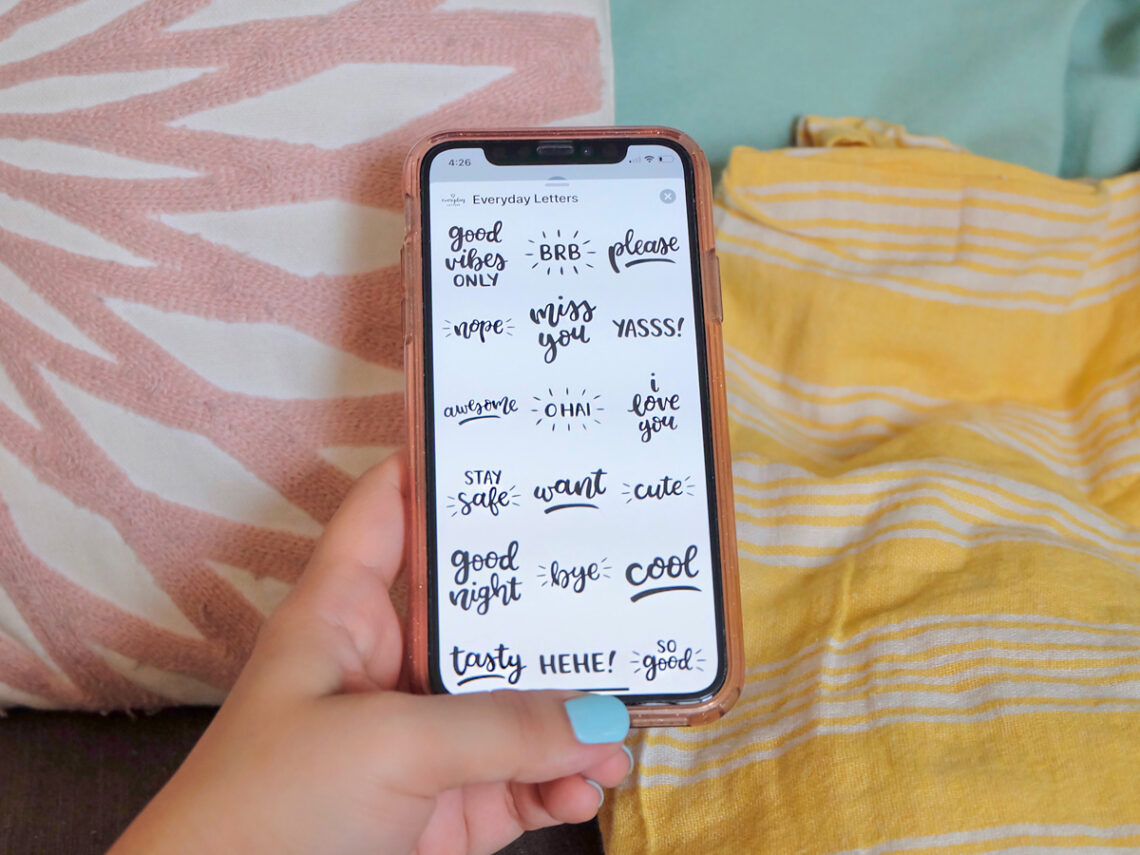 4:26
Everyday Letters
good
vibes
ONLY
BRB
please
nope
miss
you
YASSS!
awesome
OHAI
i
love
you
STAY
safe
want
cute
good
night
bye
cool
tasty
HEHE!
SO
good